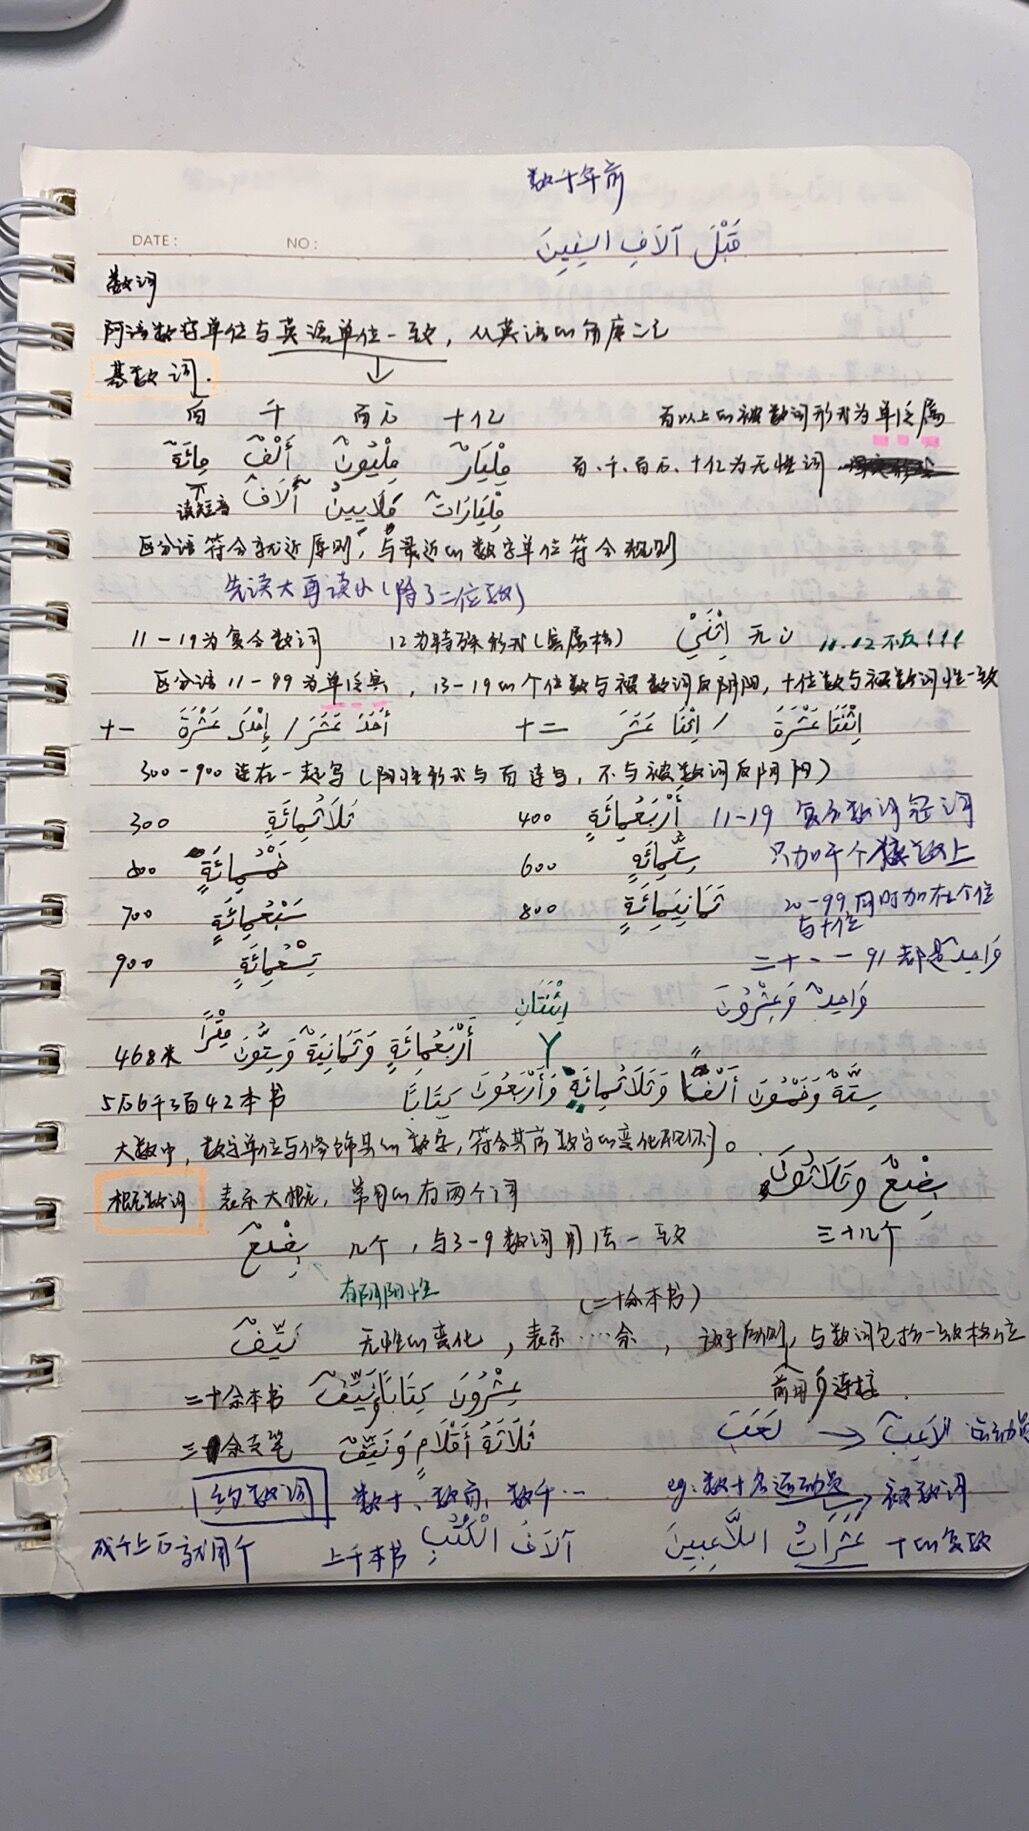 数千年前
قَبْلَ آلَافِ السِنِينَ
DATE: NO:
数词
阿语数字单位与英语单位一致，从英语的角度
基数词.
百 千 百万 十亿 百以上的被数词形式为单泛属
مِائَةٌ أَلْفٌ مِلْيُونٌ مِلْيَارٌ 百、千、百万、十亿为无性词.
读短音 آلَافٌ مَلَايِينُ مِلْيَارَاتٌ
区分语符合就近原则，与最近的数字单位符合规则
先读大再读小(除了二位数)
11-19为复合数词 12为特殊形式(宾属格) اِثْنَيْ 无ن 11.12不反!!!
区分语11-99为单泛宾，13-19的个位数与被数词反阴阳，十位数与被数词性一致
十一 أَحَدَ عَشَرَ / إِحْدَى عَشْرَةَ 十二 اِثْنَا عَشَرَ / اِثْنَتَا عَشْرَةَ
300-900连在一起写(阴性形式与百连写，不与被数词反阴阳)
300 ثَلَاثُمِائَةٍ 400 أَرْبَعُمِائَةٍ 11-19 复合数词冠词
500 خَمْسُمِائَةٍ 600 سِتُّمِائَةٍ 只加于个位数上
700 سَبْعُمِائَةٍ 800 ثَمَانِيَمِائَةٍ 20-99同时加在个位与十位
900 تِسْعُمِائَةٍ 二十一-91都是وَاحِد
اِثْنَتَانِ وَاحِدٌ وَعِشْرُونَ
468米 أَرْبَعُمِائَةٍ وَثَمَانِيَةٌ وَسِتُّونَ مِتْرًا
5万6千3百42本书 سِتَّةٌ وَخَمْسُونَ أَلْفًا وَثَلَاثُمِائَةٍ وَأَرْبَعُونَ كِتَابًا
大数中，数字单位与修饰其的数字，符合其前数字的变化规则。
概数词 表示大概，常用的有两个词 بِضْعٌ وَثَلَاثُونَ
بِضْعٌ 几个，与3-9数词用法一致 三十几个
有阴阳性 (二十余本书)
نَيِّفٌ 无性的变化，表示……余，放于后则，与数词包括一致格位
二十余本书 عِشْرُونَ كِتَابًا وَنَيِّفٌ 前用و连接.
三十余支笔 ثَلَاثَةُ أَقْلَامٍ وَنَيِّفٌ لَعِبَ → لَاعِبٌ 运动员
约数词 数十、数百、数千… eg: 数十名运动员 → 被数词
成千上万就用个 上千本书 آلَافُ الْكُتُبِ عَشَرَاتُ اللَّاعِبِينَ 十的复数